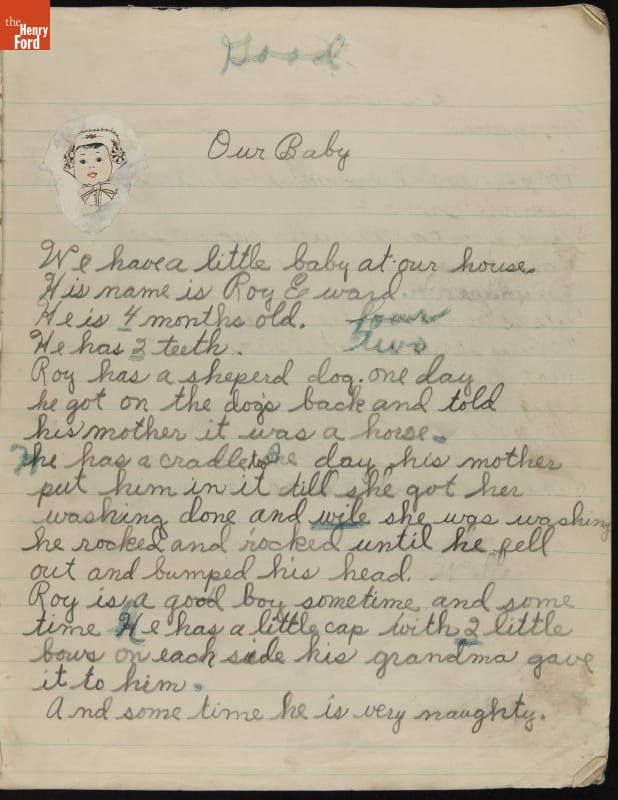 the
Henry
Ford
Good
Our Baby
We have a little baby at our house.
His name is Roy Eward
He is 4 months old. four
He has 2 teeth. Two
Roy has a sheperd dog. one day
he got on the dogs back and told
his mother it was a horse.
He has a cradle to One day his mother
put him in it till she got her
washing done and wile she was washing
he rocked and rocked until he fell
out and bumped his head.
Roy is a good boy sometime and some
time He has a little cap with 2 little
bows on each side his grandma gave
it to him.
And some time he is very naughty.